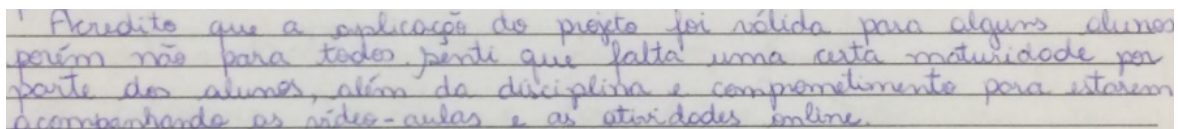 Acredito que a aplicação do projeto foi válida para alguns alunos
porém não para todos, senti que falta uma certa maturidade por
parte dos alunos, além da disciplina e comprometimento para estarem
acompanhando as vídeo-aulas e as atividades online.